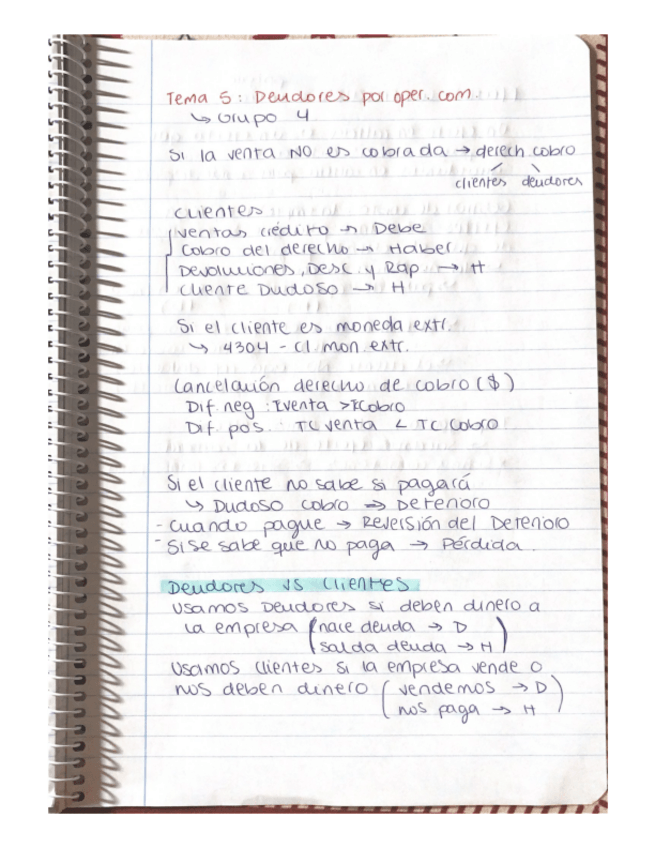 Tema 5: Deudores por oper. com.
↳ Grupo 4
Si la venta NO es cobrada → derech cobro
clientes deudores
Clientes
Ventas crédito → Debe
Cobro del derecho → Haber
Devoluciones, Desc y Rap → H
Cliente Dudoso → H
Si el cliente es moneda extr.
↳ 4304 - Cl mon extr.
Cancelación derecho de cobro ($)
Dif. neg : venta > cobro
Dif. pos : TC venta < TC cobro
Si el cliente no sabe si pagará
↳ Dudoso cobro → Deterioro
- Cuando pague → Reversión del Deterioro
- Si se sabe que no paga → Pérdida.
Deudores VS Clientes
Usamos Deudores si deben dinero a
la empresa (nace deuda → D
salda deuda → H)
Usamos Clientes si la empresa vende o
nos deben dinero (vendemos → D
nos paga → H)